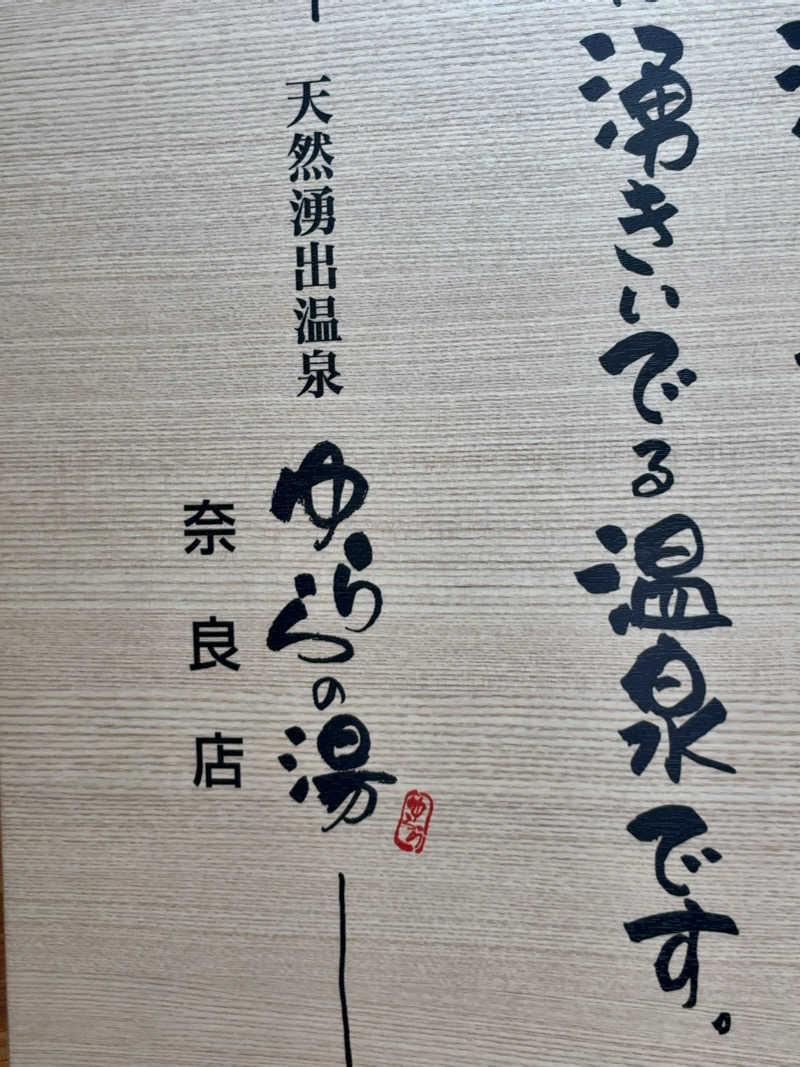 湧きいでる温泉です。
天然湧出温泉
ゆららの湯
奈良店